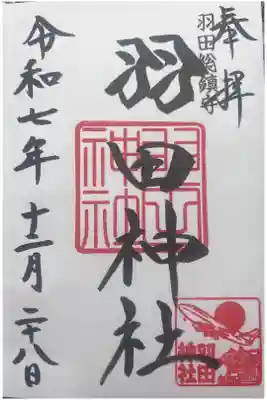 奉拝
羽田総鎮守
羽田神社
令和七年 十二月 二十八日
羽田神社
羽田
神社